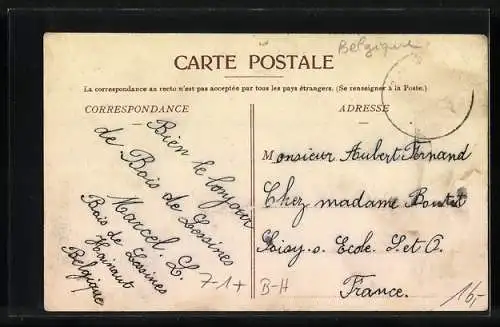 Belgique
CARTE POSTALE
La correspondance au recto n'est pas acceptée par tous les pays étrangers. (Se renseigner à la Poste.)
CORRESPONDANCE
Bien le bonjour
de Bois de Lessines
Marcel. L.
Bois de Lessines
Hainaut
Belgique
7-1+
ADRESSE
Monsieur Aubert Fernand
Chez madame
Loisy. s. Ecole. S. et O.
France.
B-H
16,-